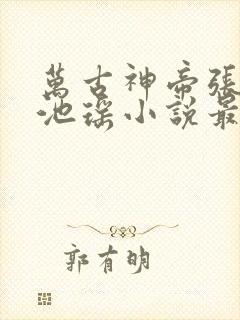 萬古神帝張
池瑤小說最
郭有明